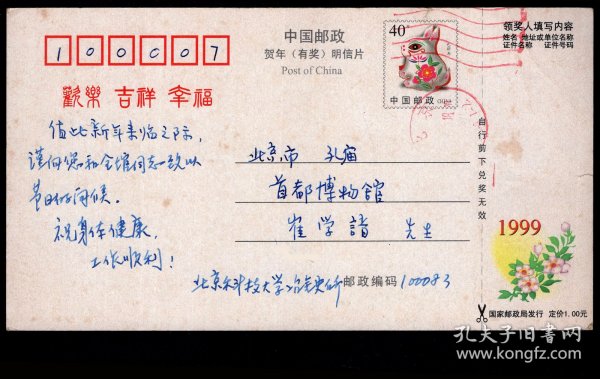 100007
中国邮政
贺年（有奖）明信片
Post of China
40
中国邮政
领奖人填写内容
姓名 地址或单位名称
证件名称 证件号码
歡樂 吉祥 幸福
值此新年来临之际,
谨向您和全馆同志一致以
节日的问候。
祝身体健康,
工作顺利!
北京市 孔庙
首都博物館
崔学諳 先生
北京科技大学冶金史所
邮政编码 100083
自行剪下兑奖无效
1999
国家邮政局发行 定价1.00元
孔夫子旧书网
www.kongfz.com